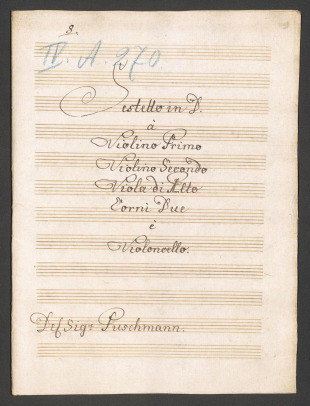 8.
IV. A. 270
Sestetto in D.
à
Violino Primo
Violino Secondo
Viola di Alto
Corni Due
è
Violoncello.
Del Sigr Puschmann.